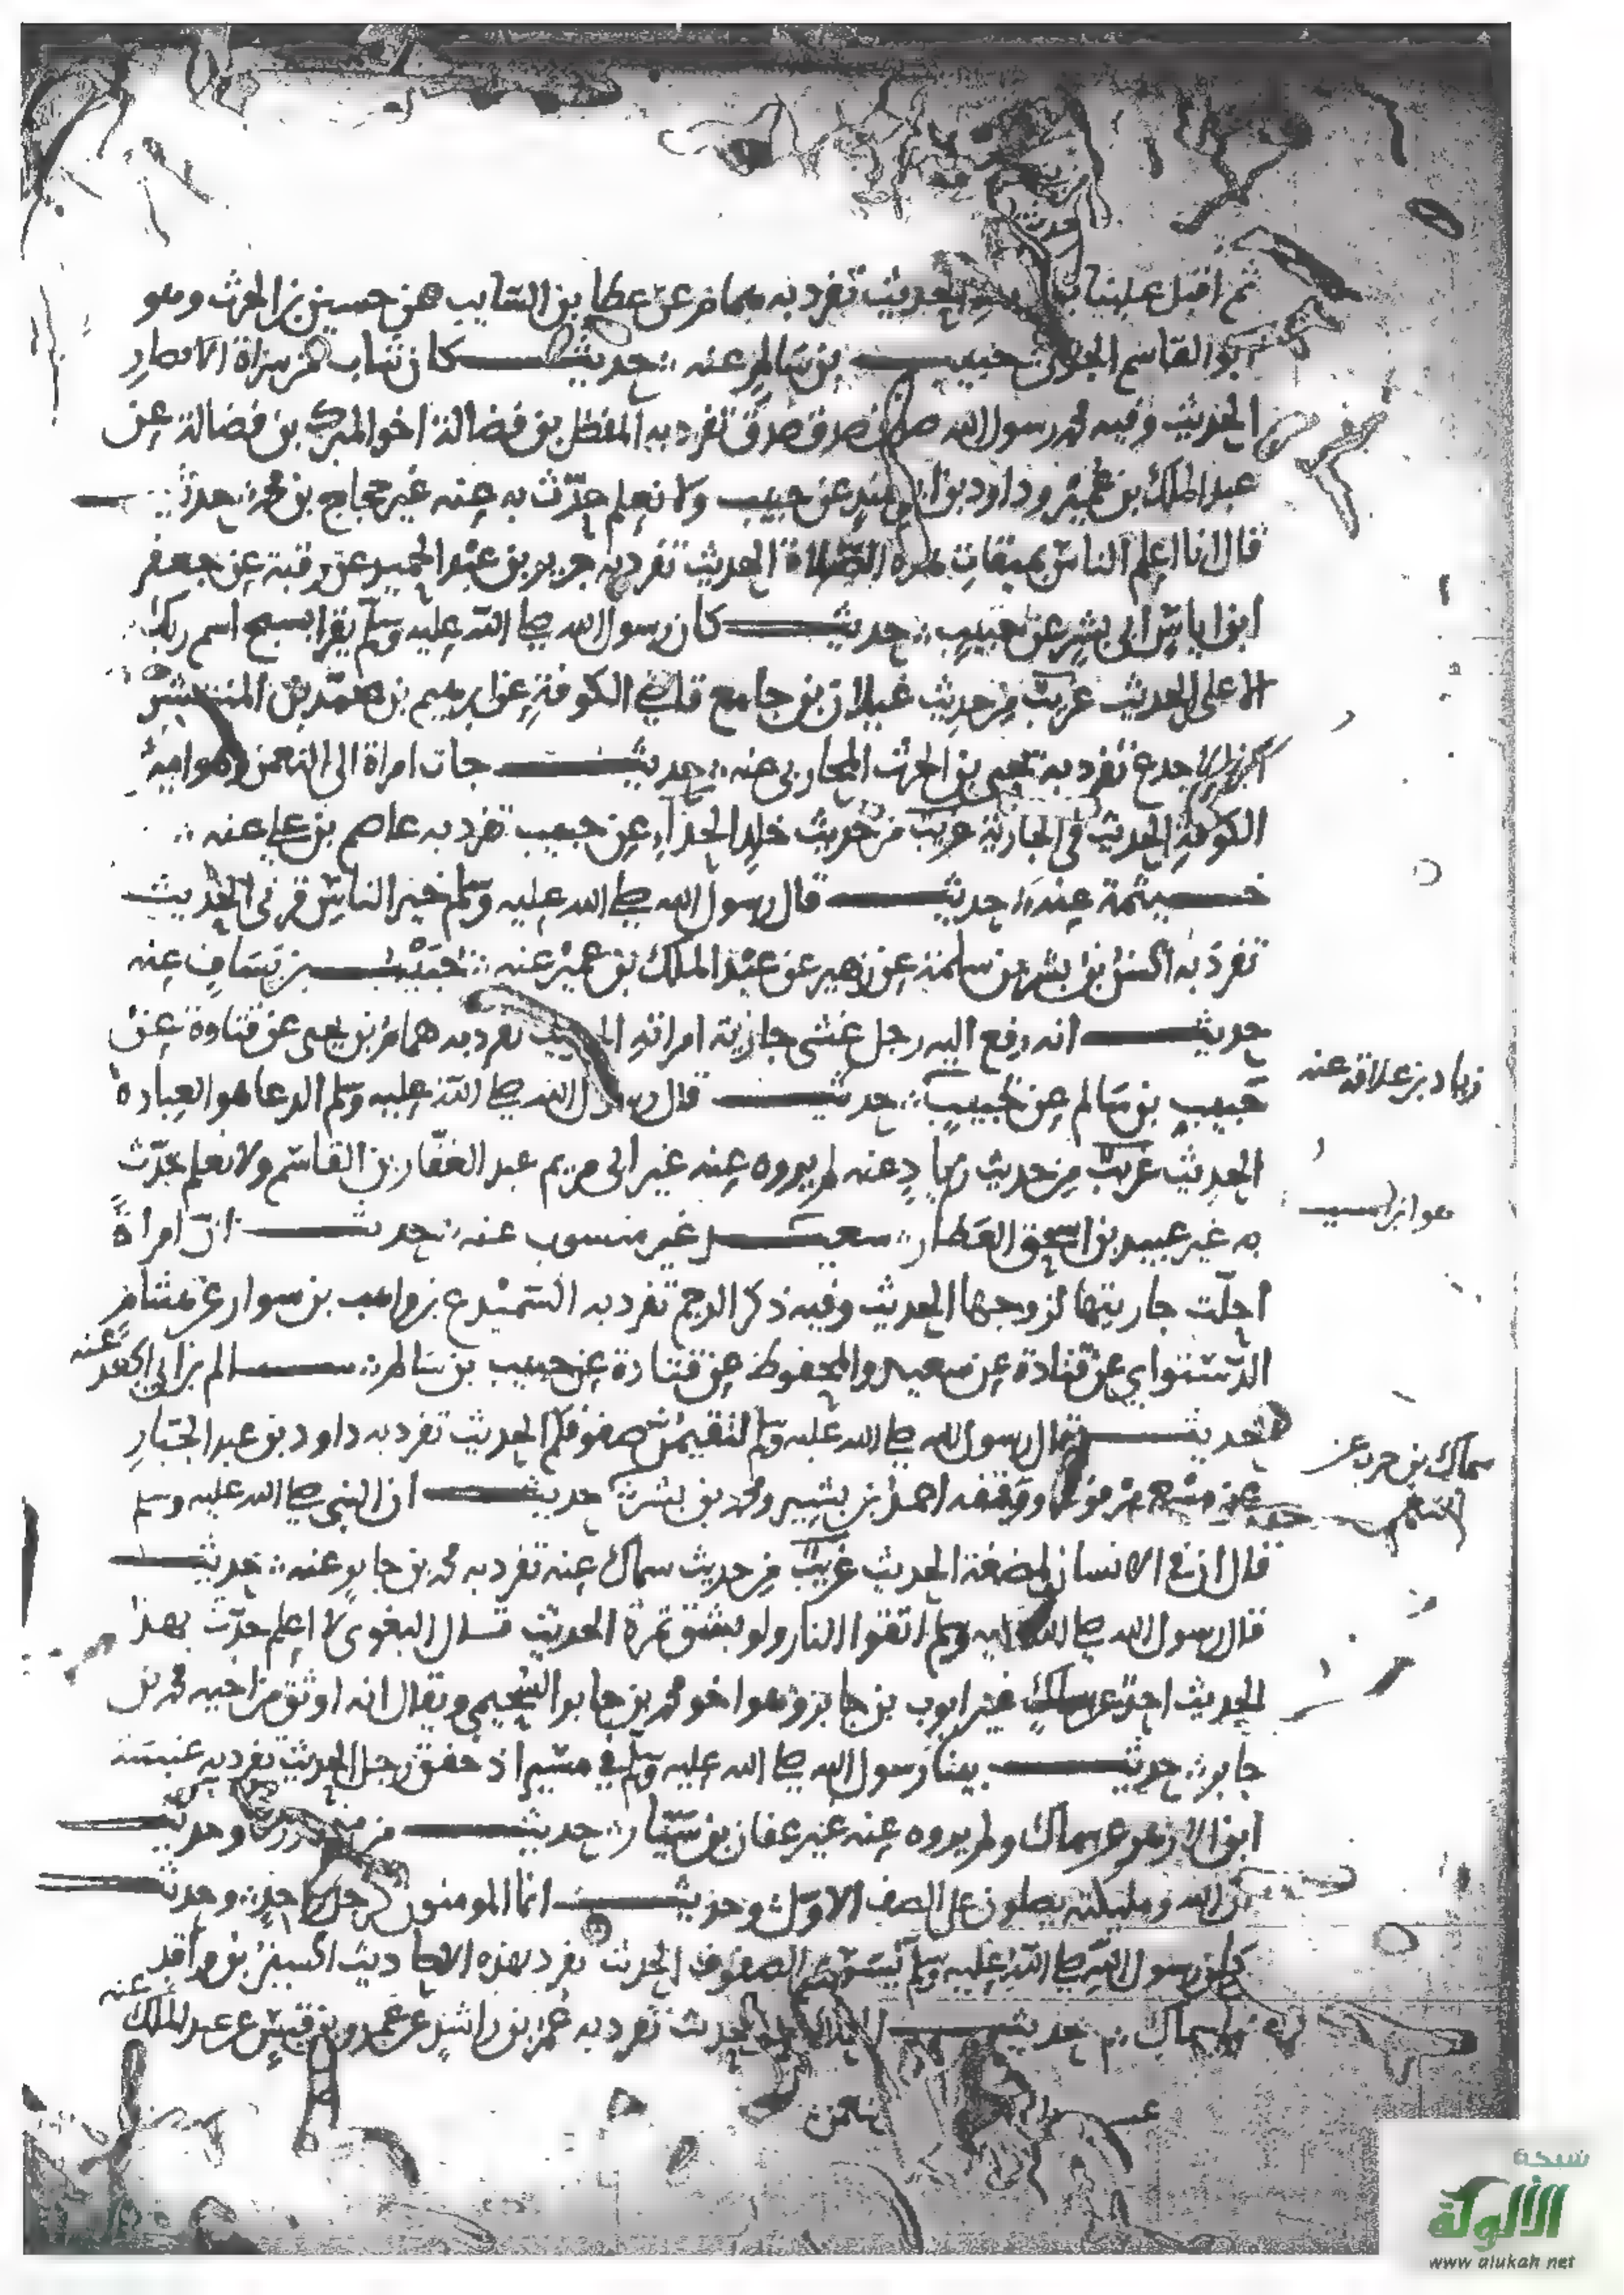 ثم اقبل علينا الحديث تفرد به همام عن عطا بن السايب عن حسين بن الحرث وهو
ابو القاسم الجدلي حبيب بن سالم عنه حديث كان شاب من سراة الانصار
الحديث وفيه محمد رسول الله صدق صدق تفرد به المفضل بن فضالة اخو المبرك بن فضالة عن
عبد الملك بن عمير وداود بن ابي هند عن حبيب ولا نعلم حدّث به عنه غير حجاج بن محمد حديث
قال انا اعلم الناس بميقات هذه الصلاة الحديث تفرد به جرير بن عبد الحميد عن رقبة عن جعفر
ابن اياس ابي بشر عن حبيب حديث كان رسول الله صلى الله عليه وسلم يقرا بسبح اسم ربك
الاعلى الحديث غريب من حديث غيلان بن جامع قاضي الكوفة عن ابرهيم بن محمد بن المنتشر
الاجدع تفرد به يحيى بن الحرث المحاربي عنه حديث جات امراة الى النعمن وهو امير
الكوفة الحديث في الجارية غريب من حديث خلد الحذاء عن حبيب تفرد به عاصم بن علي عنه
خيثمة عنه حديث قال رسول الله صلى الله عليه وسلم خير الناس قرني الحديث
تفرد به الحسن بن بشر بن سلمة عن زهير عن عبد الملك بن عمير عنه حبيب بن يساف عنه
حديث انه رفع اليه رجل غشى جارية امراته الحديث تفرد به همام بن يحيى عن قتادة عن
حبيب بن سالم عن حبيب حديث قال رسول الله صلى الله عليه وسلم الدعا هو العبادة
زياد بن علاقة عنه
الحديث غريب من حديث زياد عنه لم يروه عنه غير ابي مريم عبد الغفار بن القاسم ولا نعلم حدّث
به غير عبيد بن اسحق العطار سعيد غير منسوب عنه حديث انّ امراة
هو ابن المسيب
احلّت جاريتها لزوجها الحديث وفيه ذكر الرجم تفرد به السميدع بن واهب بن سوار عن هشام
الدستواي عن قتادة عن سعيد والمحفوظ عن قتادة عن حبيب بن سالم سالم بن ابي الجعد عنه
حديث قال رسول الله صلى الله عليه وسلم لتقيمن صفوفكم الحديث تفرد به داود بن عبد الجبار
سماك بن حرب عن
عن مسعر مرفوعا ووقفه احمد بن بشير ومحمد بن بشر حديث ان النبي صلى الله عليه وسلم
النعمن
قال ان في الانسان لمضغة الحديث غريب من حديث سماك عنه تفرد به محمد بن جابر عنه حديث
قال رسول الله صلى الله عليه وسلم اتقوا النار ولو بشق تمرة الحديث قال البغوي لا اعلم حدّث بهذا
الحديث احد عن سماك غير ايوب بن جابر وهو اخو محمد بن جابر السحيمي ويقال انه اوثق من اخيه محمد بن
جابر حديث بينا رسول الله صلى الله عليه وسلم في مسير اذ خفق رجل الحديث تفرد به عنبسة
ابن الازهر عن سماك ولم يروه عنه غير عفان بن سيّار حديث من وحديث
ان الله وملايكته يصلون على الصف الاول وحديث انما المومنون كرجل واحد وحديث
كان رسول الله صلى الله عليه وسلم يسوي الصفوف الحديث تفرد بهذه الاحاديث الحسين بن واقد
عن سماك حديث الحديث تفرد به عمر بن راشد عن عمرو بن قيس عن عبد الملك عنه
شبكة
الألوكة
www alukah net